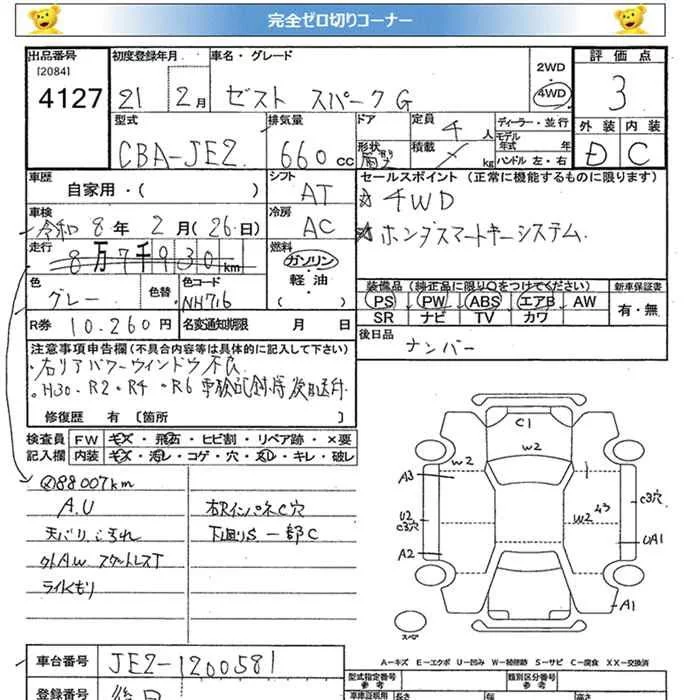 完全ゼロ切りコーナー
出品番号
[2084]
4127
初度登録年月
21 2月
車名・グレード
ゼスト スパークG
2WD
・
4WD
評価点
3
型式
CBA-JE2
排気量
660 cc
ドア
形状
定員
4人
積載
kg
ディーラー・並行
モデル年式 年
ハンドル 左・右
外装 内装
D C
車歴
自家用・( )
シフト
AT
セールスポイント (正常に機能するものに限ります)
☆ 4WD
☆ ホンダスマートキーシステム
車検
令和 8年 2月 (26日)
冷房
AC
走行
8万7千930km
燃料
ガソリン
・
軽油
・
( )
色
グレー
色替
色コード
NH716
装備品 (純正品に限り○をつけてください)
PS PW ABS エアB AW
SR ナビ TV カワ
新車保証書
有・無
R券 10.260円
名変通知期限 月 日
後日品
ナンバー
注意事項申告欄 (不具合内容等は具体的に記入して下さい)
・右リアパワーウインドウ不良
。H30・R2・R4・R6 車検記録簿後日送付
修復歴 有 〔箇所 〕
検査員 FW キズ・飛石・ヒビ割・リペア跡・×要
記入欄 内装 キズ・汚レ・コゲ・穴・スレ・キレ・破レ
88007km
A.U
天バリ、シミ汚れ
外AW スタットレスT
ライトくもり
右Rインパネ C穴
下回りS 一部C
C1
W2
W2
A3
U2
C3穴
A2
W2
43
C3穴
UA1
A1
スペア
A-キズ E-エクボ U-凹み W-補修跡 S-サビ C-腐食 XX-交換済
車台番号 JE2-1200581
登録番号 後日
型式指定番号
参考
類別区分番号
参考
車庫証明用 長さ 幅 高さ